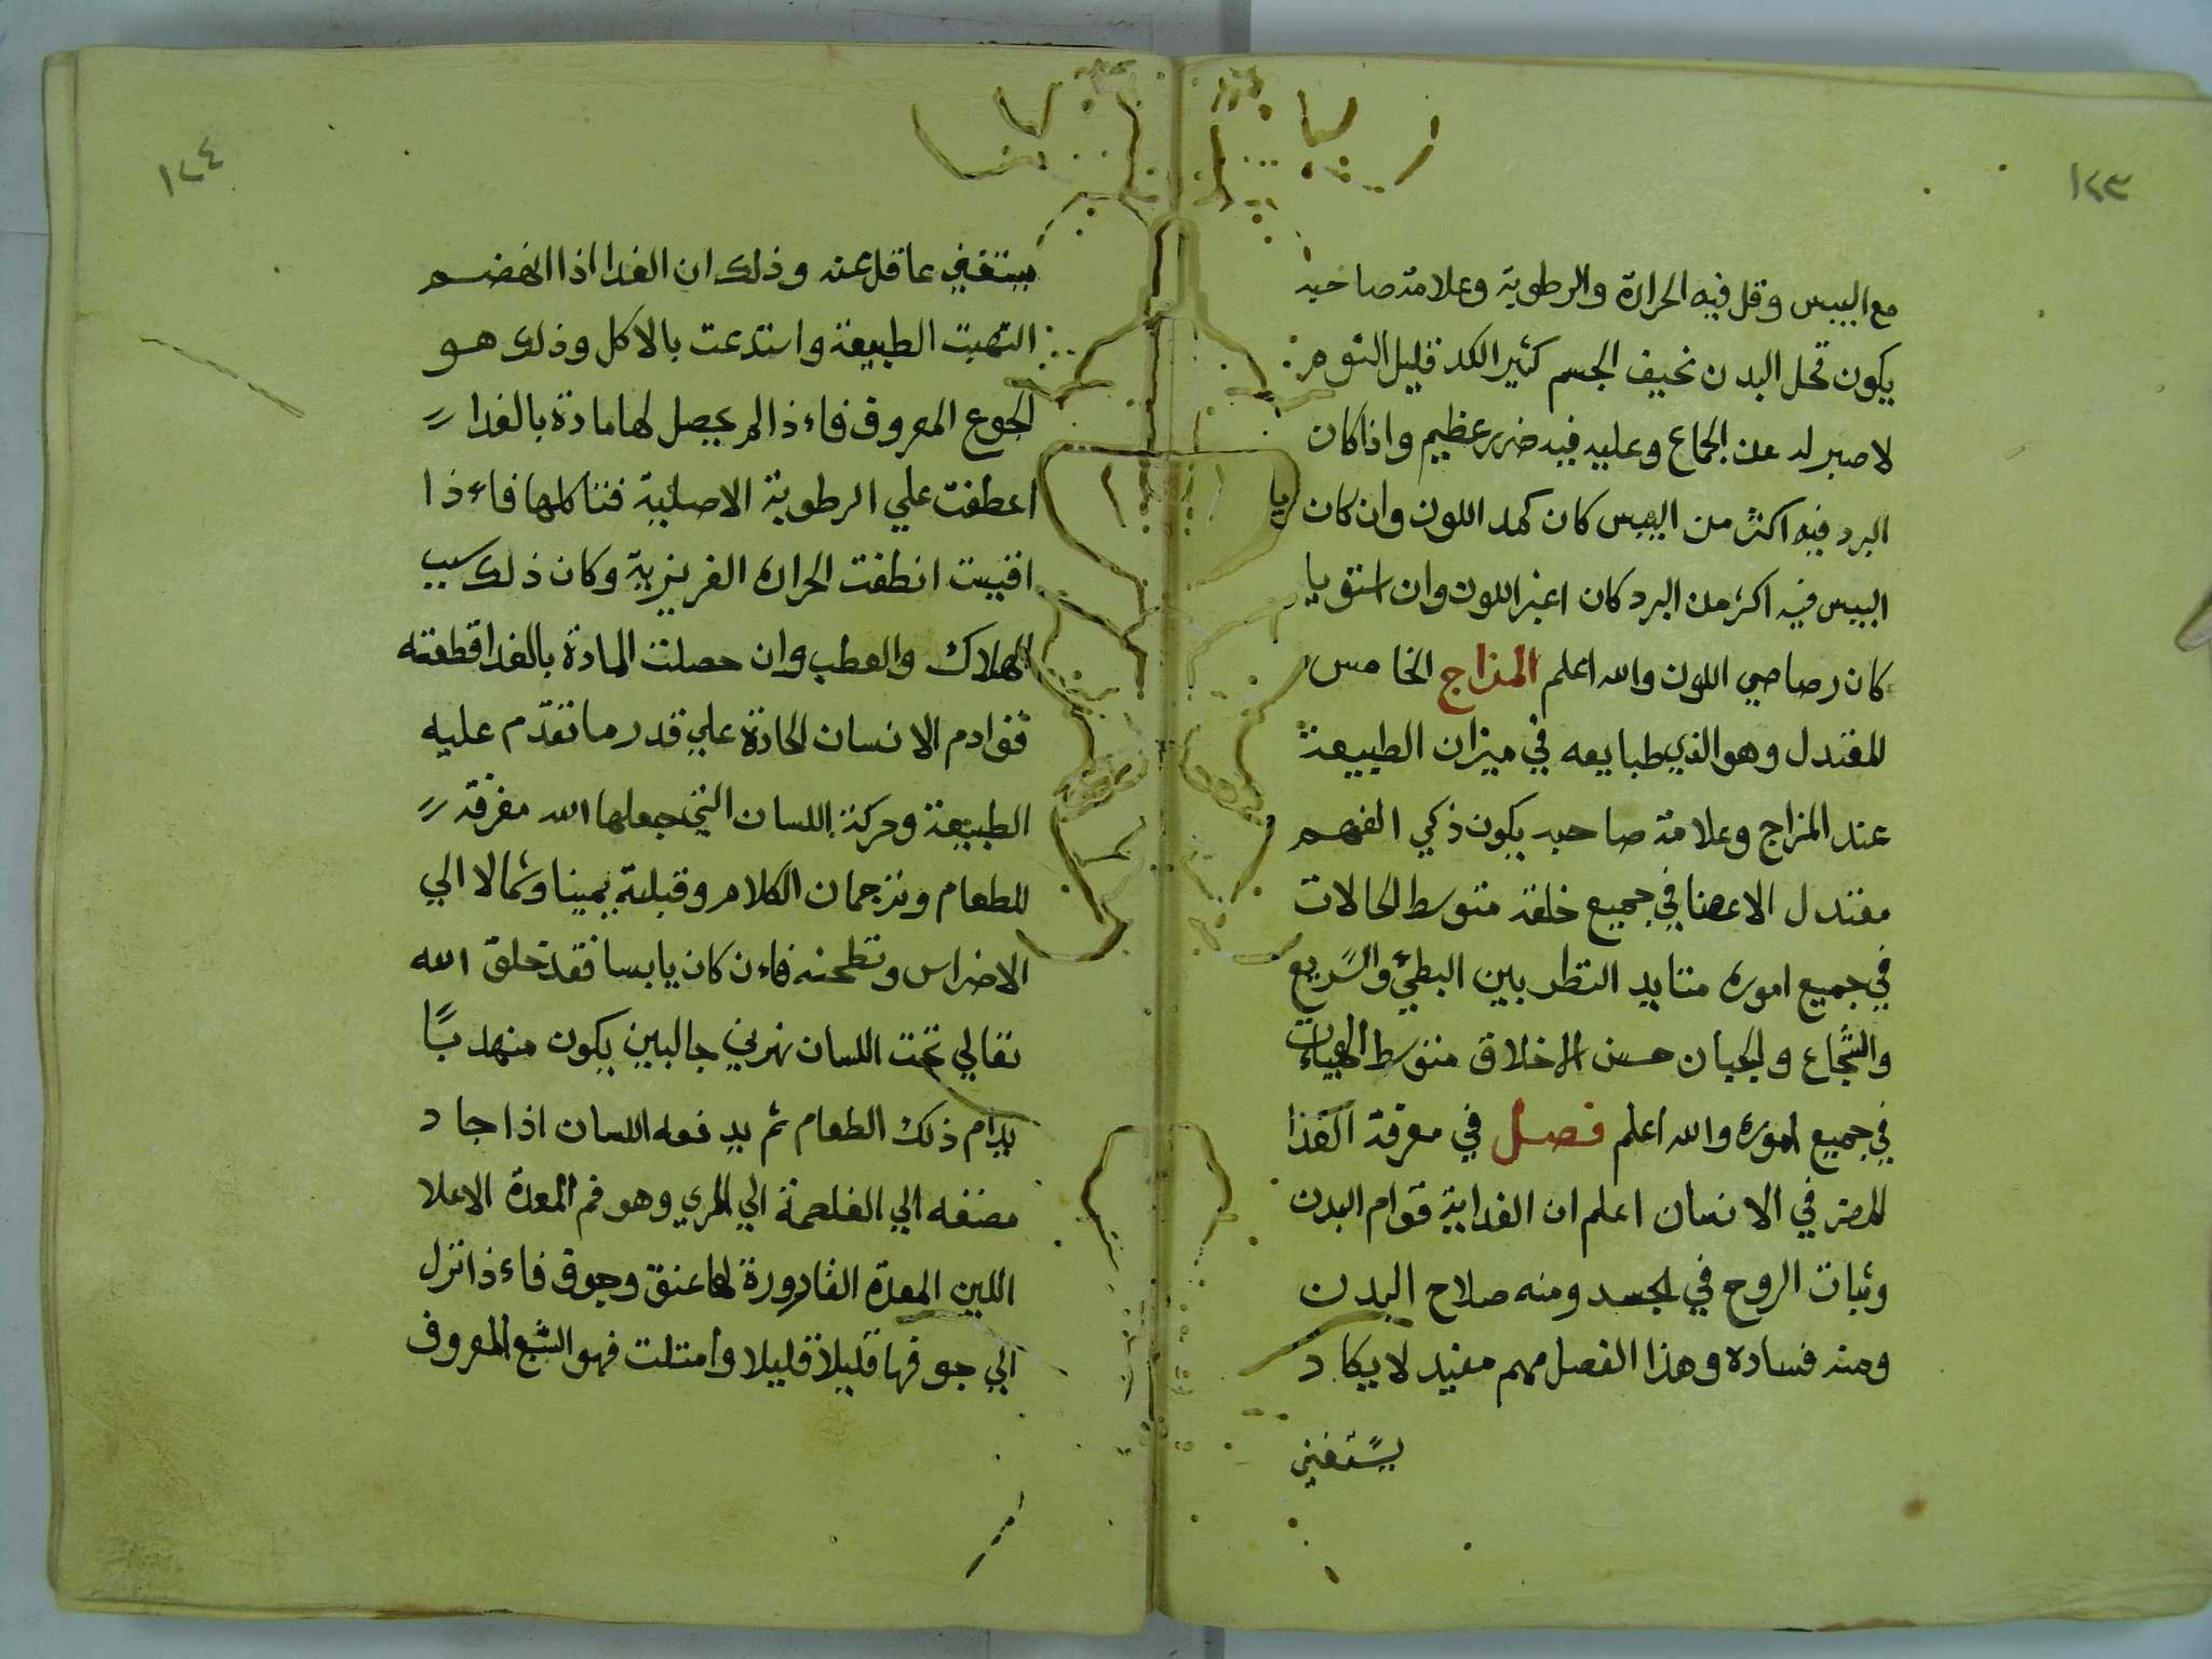 ١٢٣
مع اليبس وقل فيه الحرارة والرطوبة وعلامة صاحبه
يكون قحل البدن نحيف الجسم كثير الكد قليل النوم
لا صبر له عن الجماع وعليه فيه ضرر عظيم واذا كان
البرد فيه اكثر من اليبس كان كمد اللون وان كان
اليبس فيه اكثر من البرد كان اغبر اللون وان استويا
كان رصاصي اللون والله اعلم المزاج الخامس
المعتدل وهو الذي طبايعه في ميزان الطبيعة
عند المزاج وعلامة صاحبه يكون ذكي الفهم
معتدل الاعضا في جميع خلقه متوسط الحالات
في جميع اموره النظر بين البطيء والسريع
والشجاع والجبان حسن الاخلاق متوسط
في جميع اموره والله اعلم فصل في معرفة الغذا
المضر في الانسان اعلم ان الغدا به قوام البدن
وثبات الروح في الجسد ومنه صلاح البدن
ومنه فساده وهذا الفصل مهم مفيد لا يكاد
يستغني
١٢٤
يستغني عاقل عنه وذلك ان الغدا اذا انهضم
التهبت الطبيعة واستدعت بالاكل وذلك هو
الجوع المعروف فاءذا لم يحصل لها مادة بالغدا
اعطفت علي الرطوبة الاصلية فتاكلها فاءذا
افنيت انطفت الحراره الغريزية وكان ذلك سبب
الهلاك والعطب وان حصلت المادة بالغدا قطعته
قوادم الانسان الحادة علي قدر ما تقدم عليه
الطبيعة وحركة اللسان التي جعلها الله مغرفة
للطعام وترجمان الكلام وقبلبه يمينا وشمالا الي
الاضراس وتطحنه فاءن كان يابسا فقد خلق الله
تعالي تحت اللسان نهرني جالبين يكون منهد بًا
يدام ذلك الطعام ثم يدفعه اللسان اذا جاد
مضغه الي الغلعمة الي المري وهو فم المعدة الاعلا
اللين المعدة القارورة لها عنق وجوف فاءذا نزل
الي جوفها قليلا قليلا وامتلت فهو الشبع المعروف